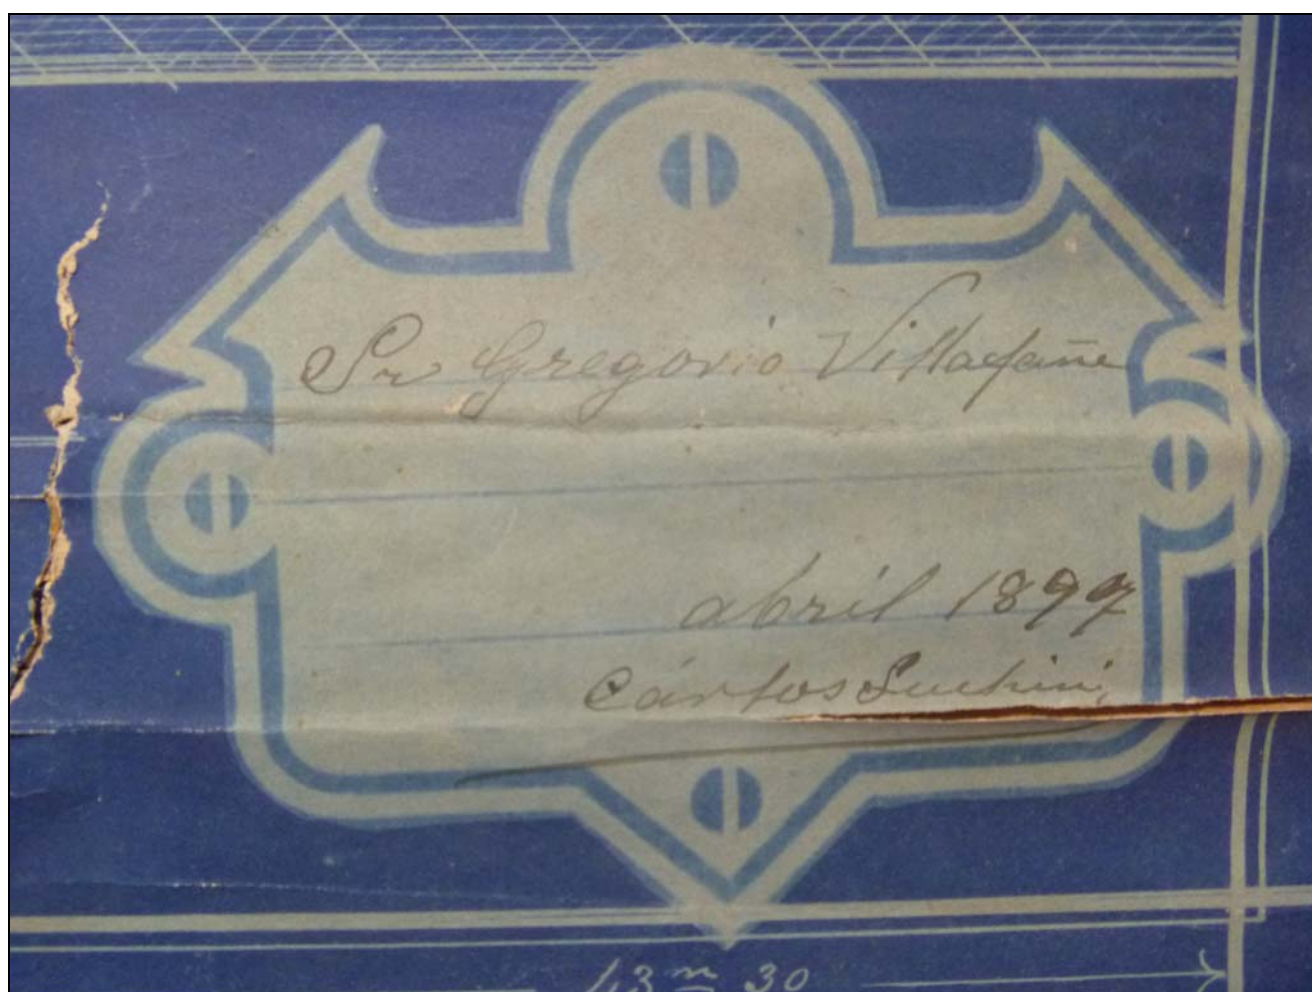 Sr Gregorio Villafañe
abril 1897
Cárlos Suchini
43 m 30